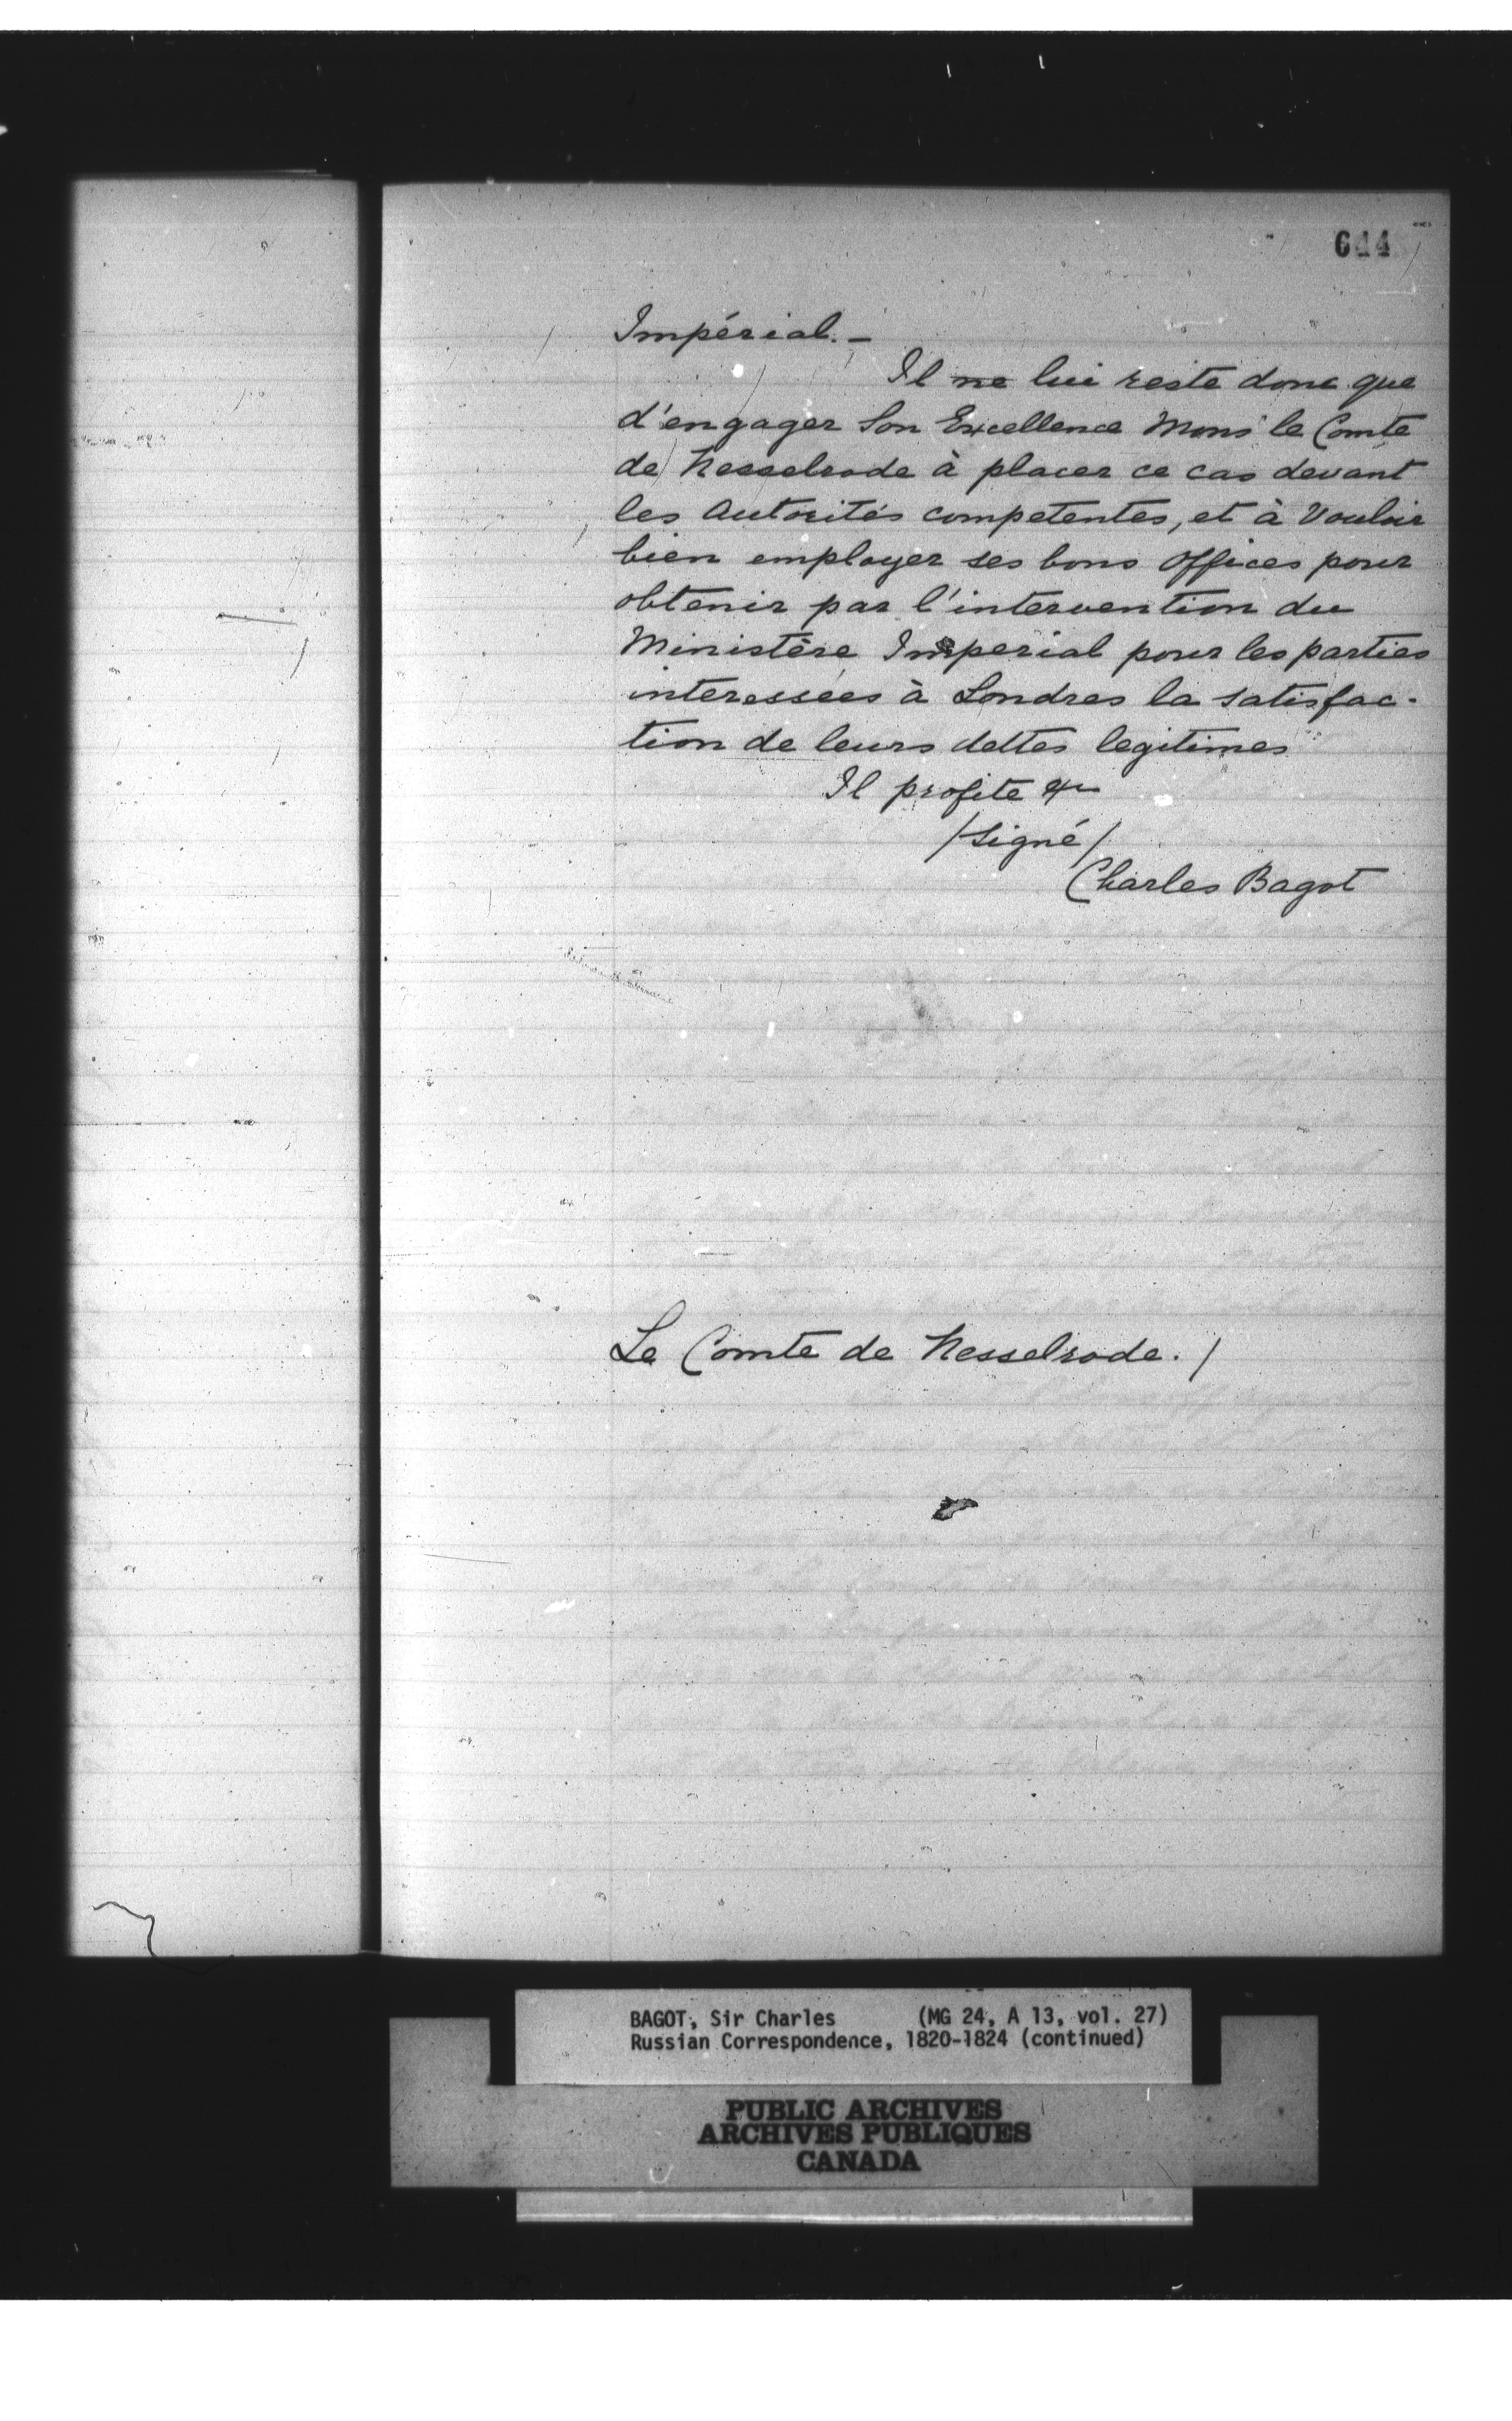 644
Impérial. —
Il ne lui reste donc que
d'engager Son Excellence Monsr le Comte
de Nesselrode à placer ce cas devant
les Autorités competentes, et à Vouloir
bien employer ses bons Offices pour
obtenir par l'intervention du
Ministère Imperial pour les parties
interessées à Londres la satisfac-
tion de leurs dettes legitimes
Il profite &c
/Signé/
Charles Bagot
Le Comte de Nesselrode. /
BAGOT, Sir Charles (MG 24, A 13, vol. 27)
Russian Correspondence, 1820-1824 (continued)
PUBLIC ARCHIVES
ARCHIVES PUBLIQUES
CANADA